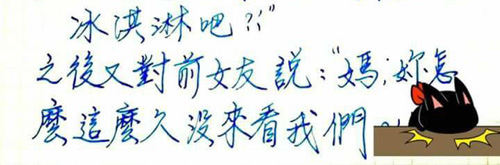 冰淇淋吧??"
之後又對前女友説:"媽,妳怎
麼這麼久沒來看我們